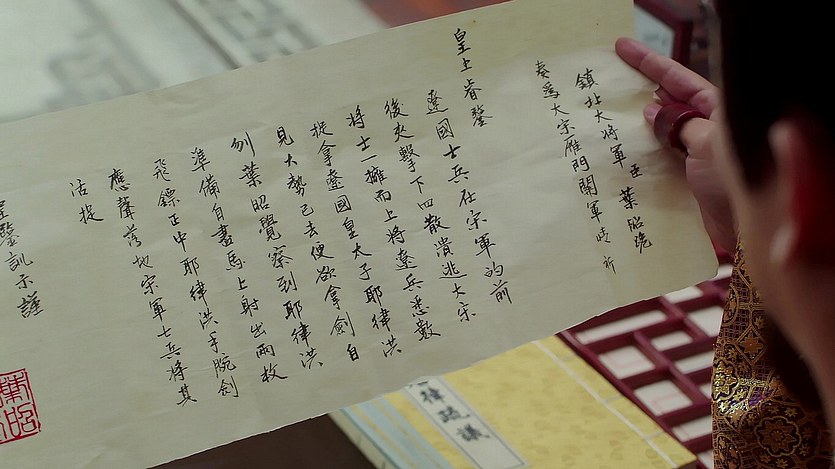 鎮北大將軍臣葉昭跪
奏爲大宋雁門關軍情祈
皇上睿鑒
遼國士兵在宋軍的前
後夾擊下四散潰逃大宋
將士一擁而上將遼兵悉數
捉拿遼國皇太子耶律洪
見大勢已去便欲拿劍自
刎葉昭覺察到耶律洪
準備自盡馬上射出兩枚
飛鏢正中耶律洪手腕劍
應聲落地宋軍士兵將其
活捉
聖鑒訓示謹
葉昭
律疏議